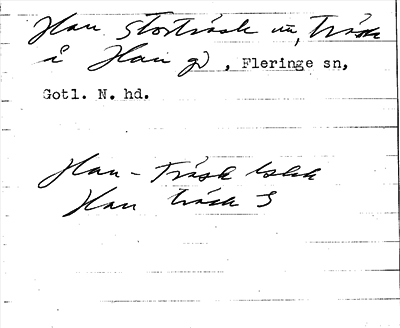 Hau Storträsk vn, Träsk
i Hau gd, Fleringe sn,
Gotl. N. hd.
Hau-Träsk
Hau träsk S